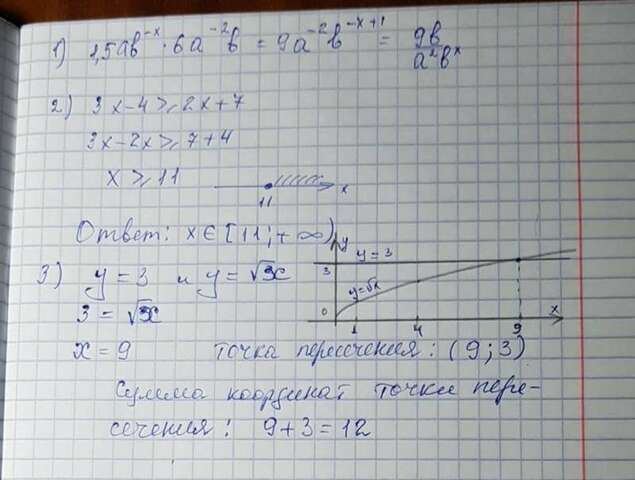 1) 1,5ab⁻ˣ · 6a⁻²b = 9a⁻²b⁻ˣ⁺¹ = 9b/a²bˣ
2) 3x-4 ⩾ 2x+7
3x-2x ⩾ 7+4
x ⩾ 11
11 x
Ответ: x ∈ [11; +∞)
3) y = 3 и y = √x
3 = √x
y
y = 3
3
y=√x
0 1 4 9 x
x = 9 точка пересечения: (9; 3)
Сумма координат точки пере-
сечения: 9+3 = 12